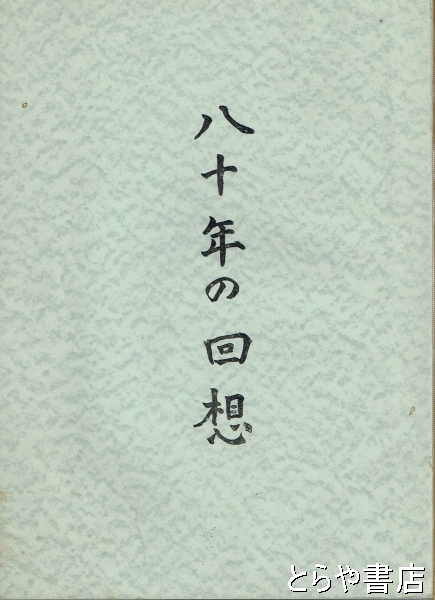 八十年の回想
とらや書店